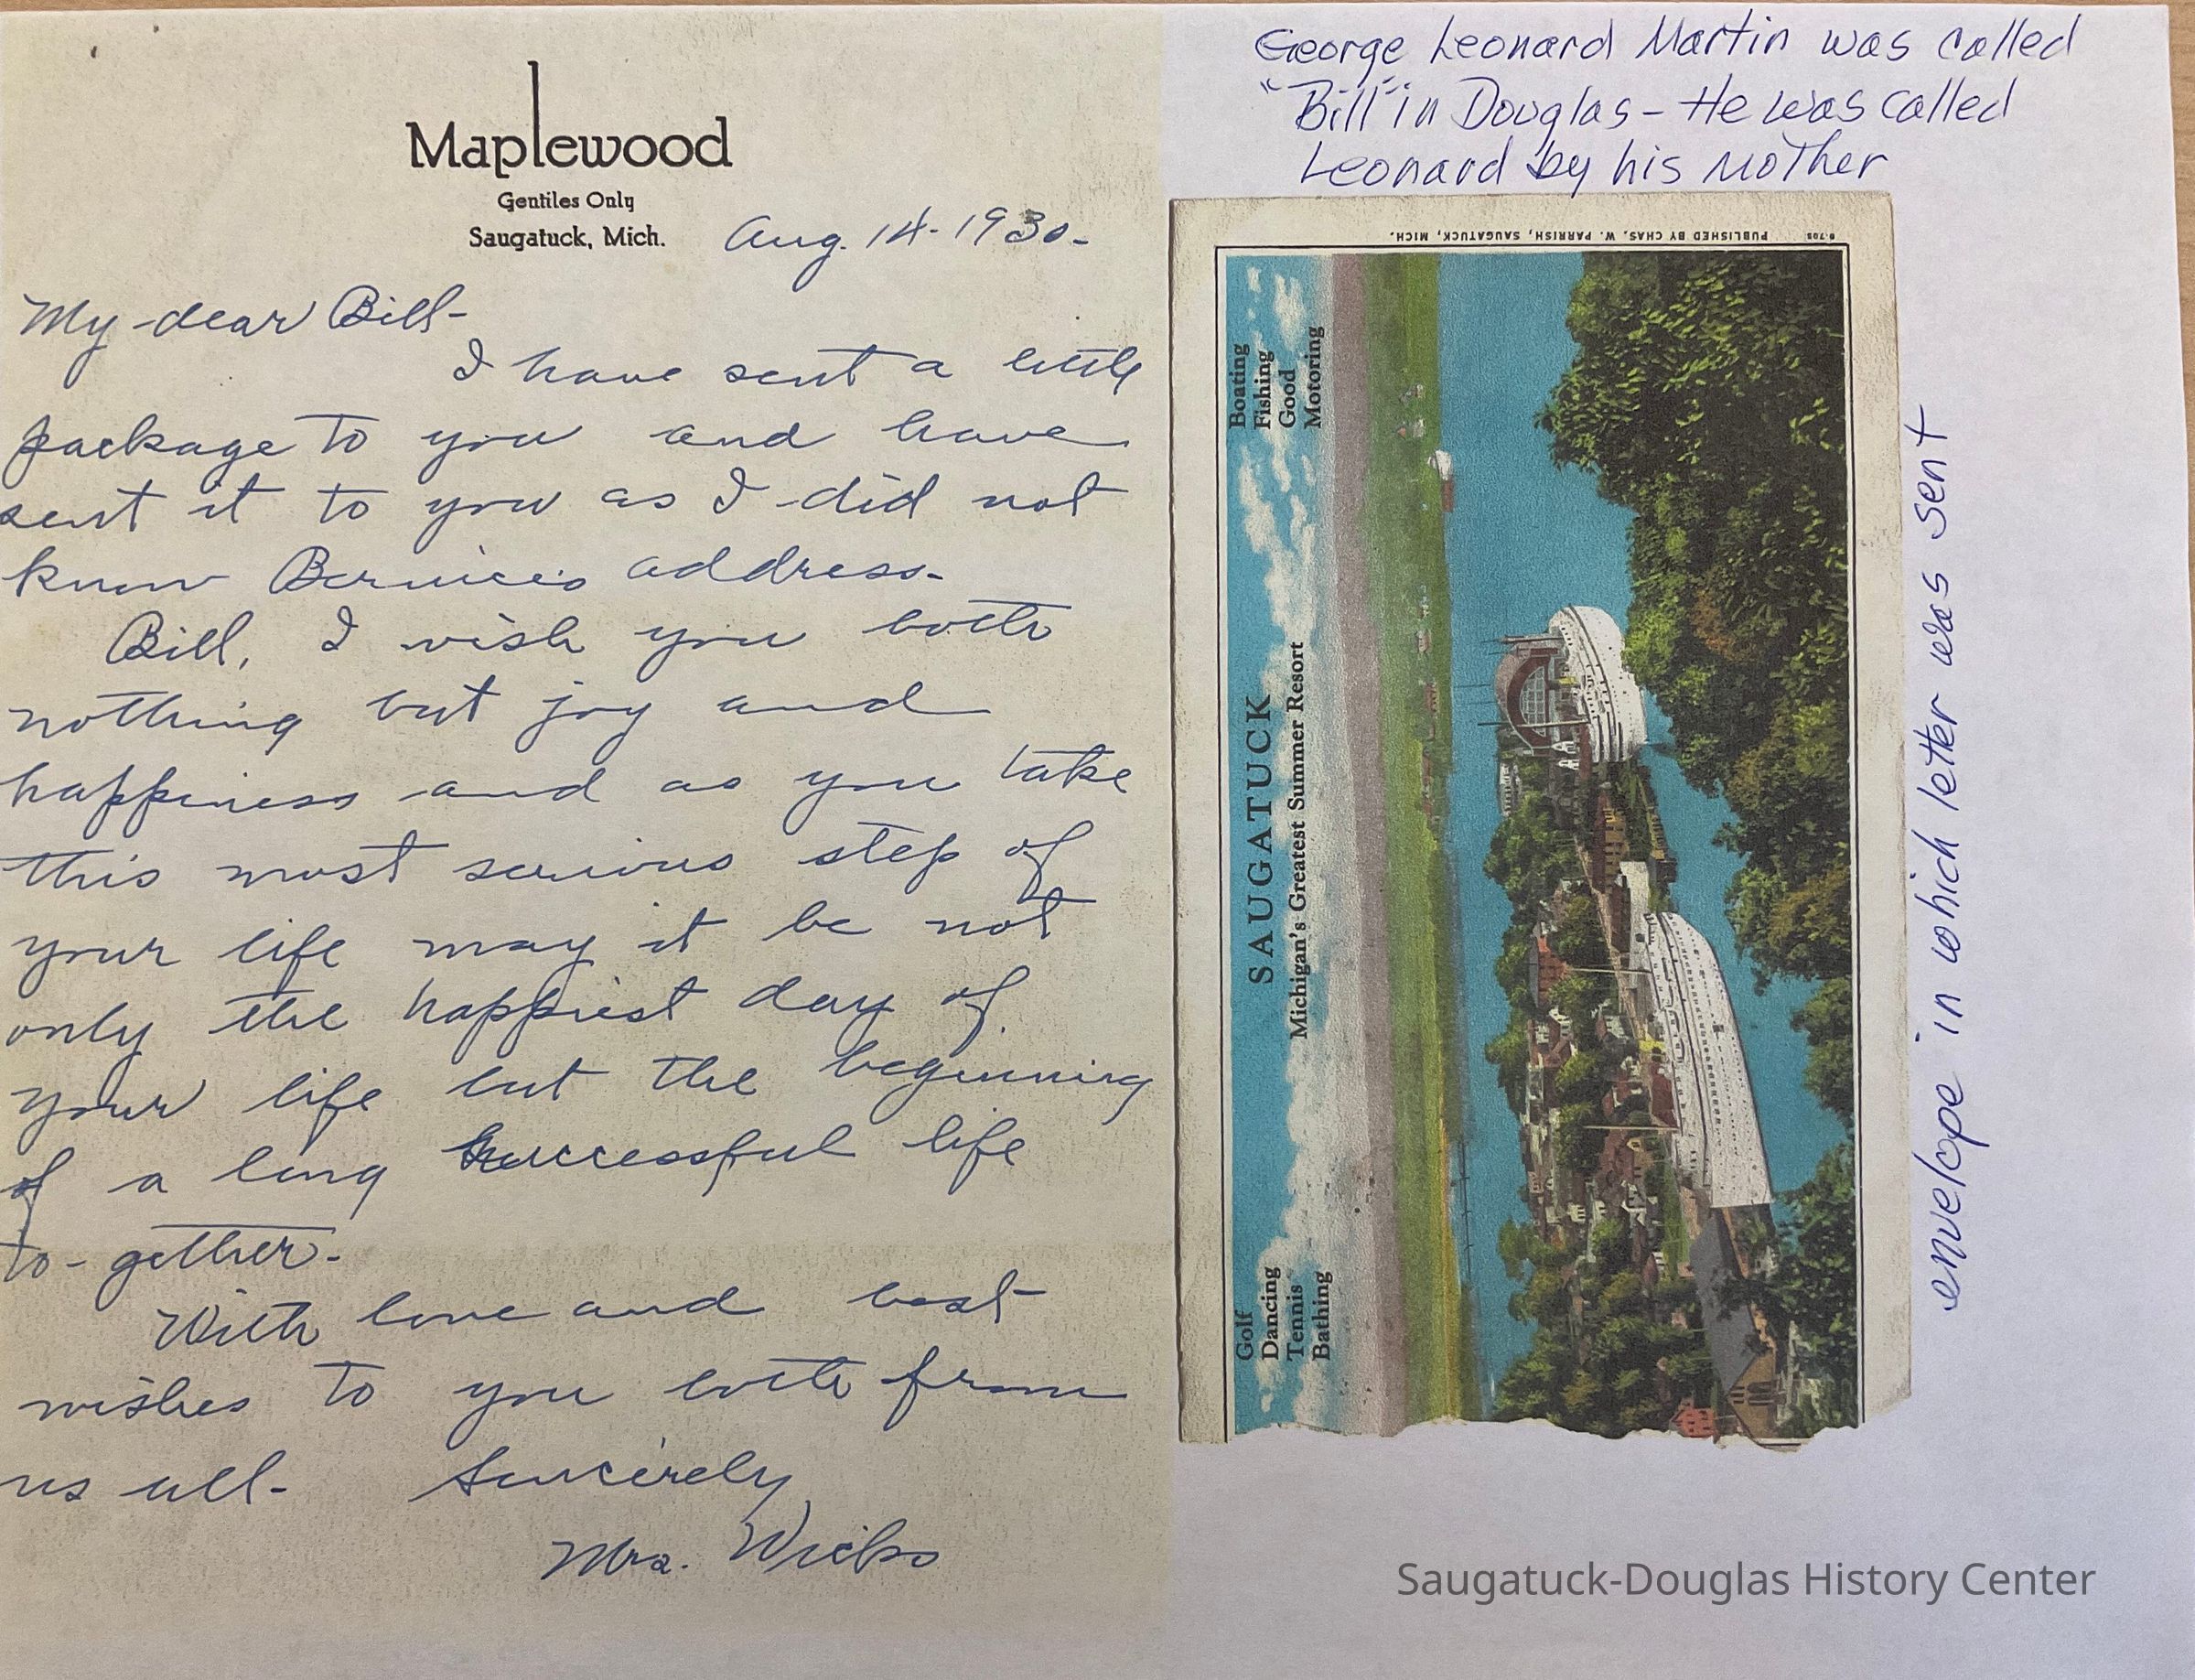 Maplewood
Gentiles Only
Saugatuck, Mich.
Aug. 14-1930-
My dear Bill-
I have sent a little
package to you and have
sent it to you as I did not
know Bernices address-
Bill, I wish you both
nothing but joy and
happiness and as you take
this most serious step of
your life may it be not
only the happiest day of
your life but the beginning
of a long successful life
to-gether-
With love and best
wishes to you both from
us all-
Sincerely
Mrs. Wicks
George Leonard Martin was called
"Bill" in Douglas - He was called
Leonard by his Mother
PUBLISHED BY CHAS. W. PARRISH, SAUGATUCK, MICH.
SAUGATUCK
Michigan's Greatest Summer Resort
Golf
Dancing
Tennis
Bathing
Boating
Fishing
Good
Motoring
envelope in which letter was sent
Saugatuck-Douglas History Center